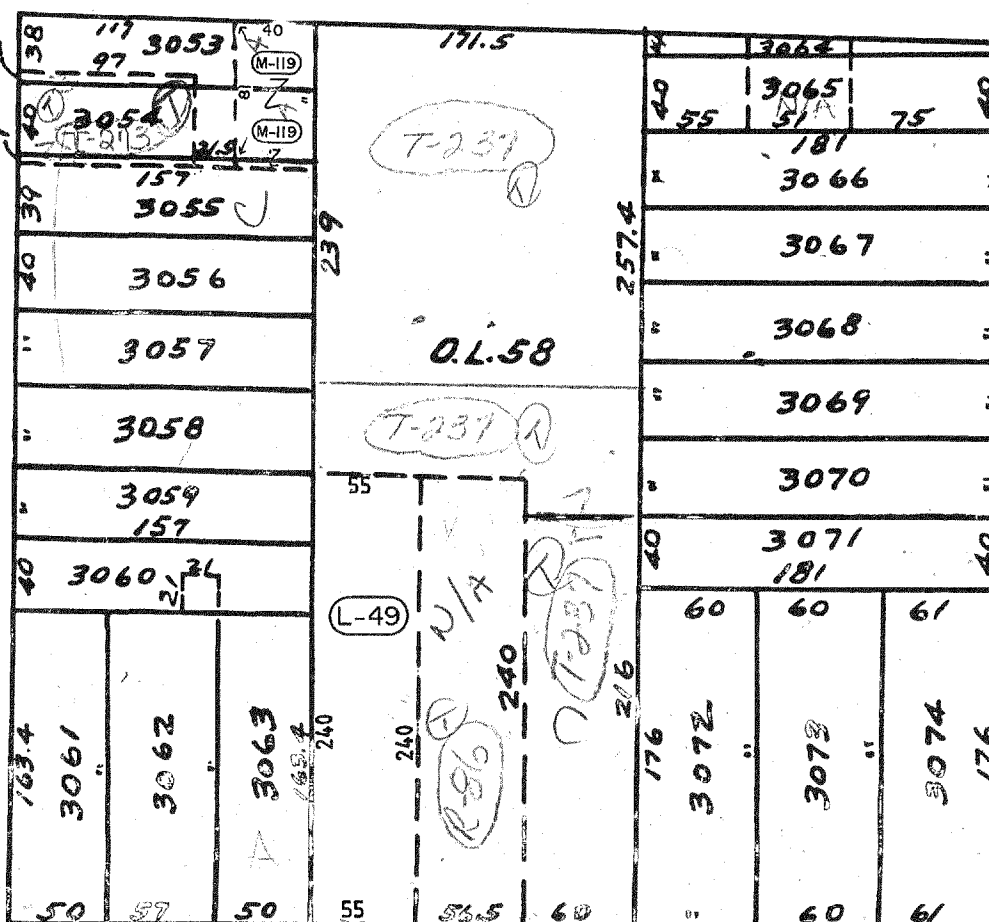 38
117
3053
40
97
M-119
40
3054
T-273
T
81
"
M-119
21.5
7
157
39
3055
40
3056
"
3057
"
3058
"
3059
157
40
3060
21
21
163.4
3061
"
3062
"
3063
163.4
A
50
57
50
171.5
T-237
T
239
257.4
O.L.58
T-237
T
55
L-49
N/A
T
T-237
240
240
240
216
T
R-86
55
56.5
60
4
3064
40
3065
N/A
40
55
51
75
181
"
3066
"
3067
"
"
3068
"
"
3069
"
"
3070
"
40
3071
40
181
60
60
61
176
3072
"
3073
"
3074
176
"
60
61